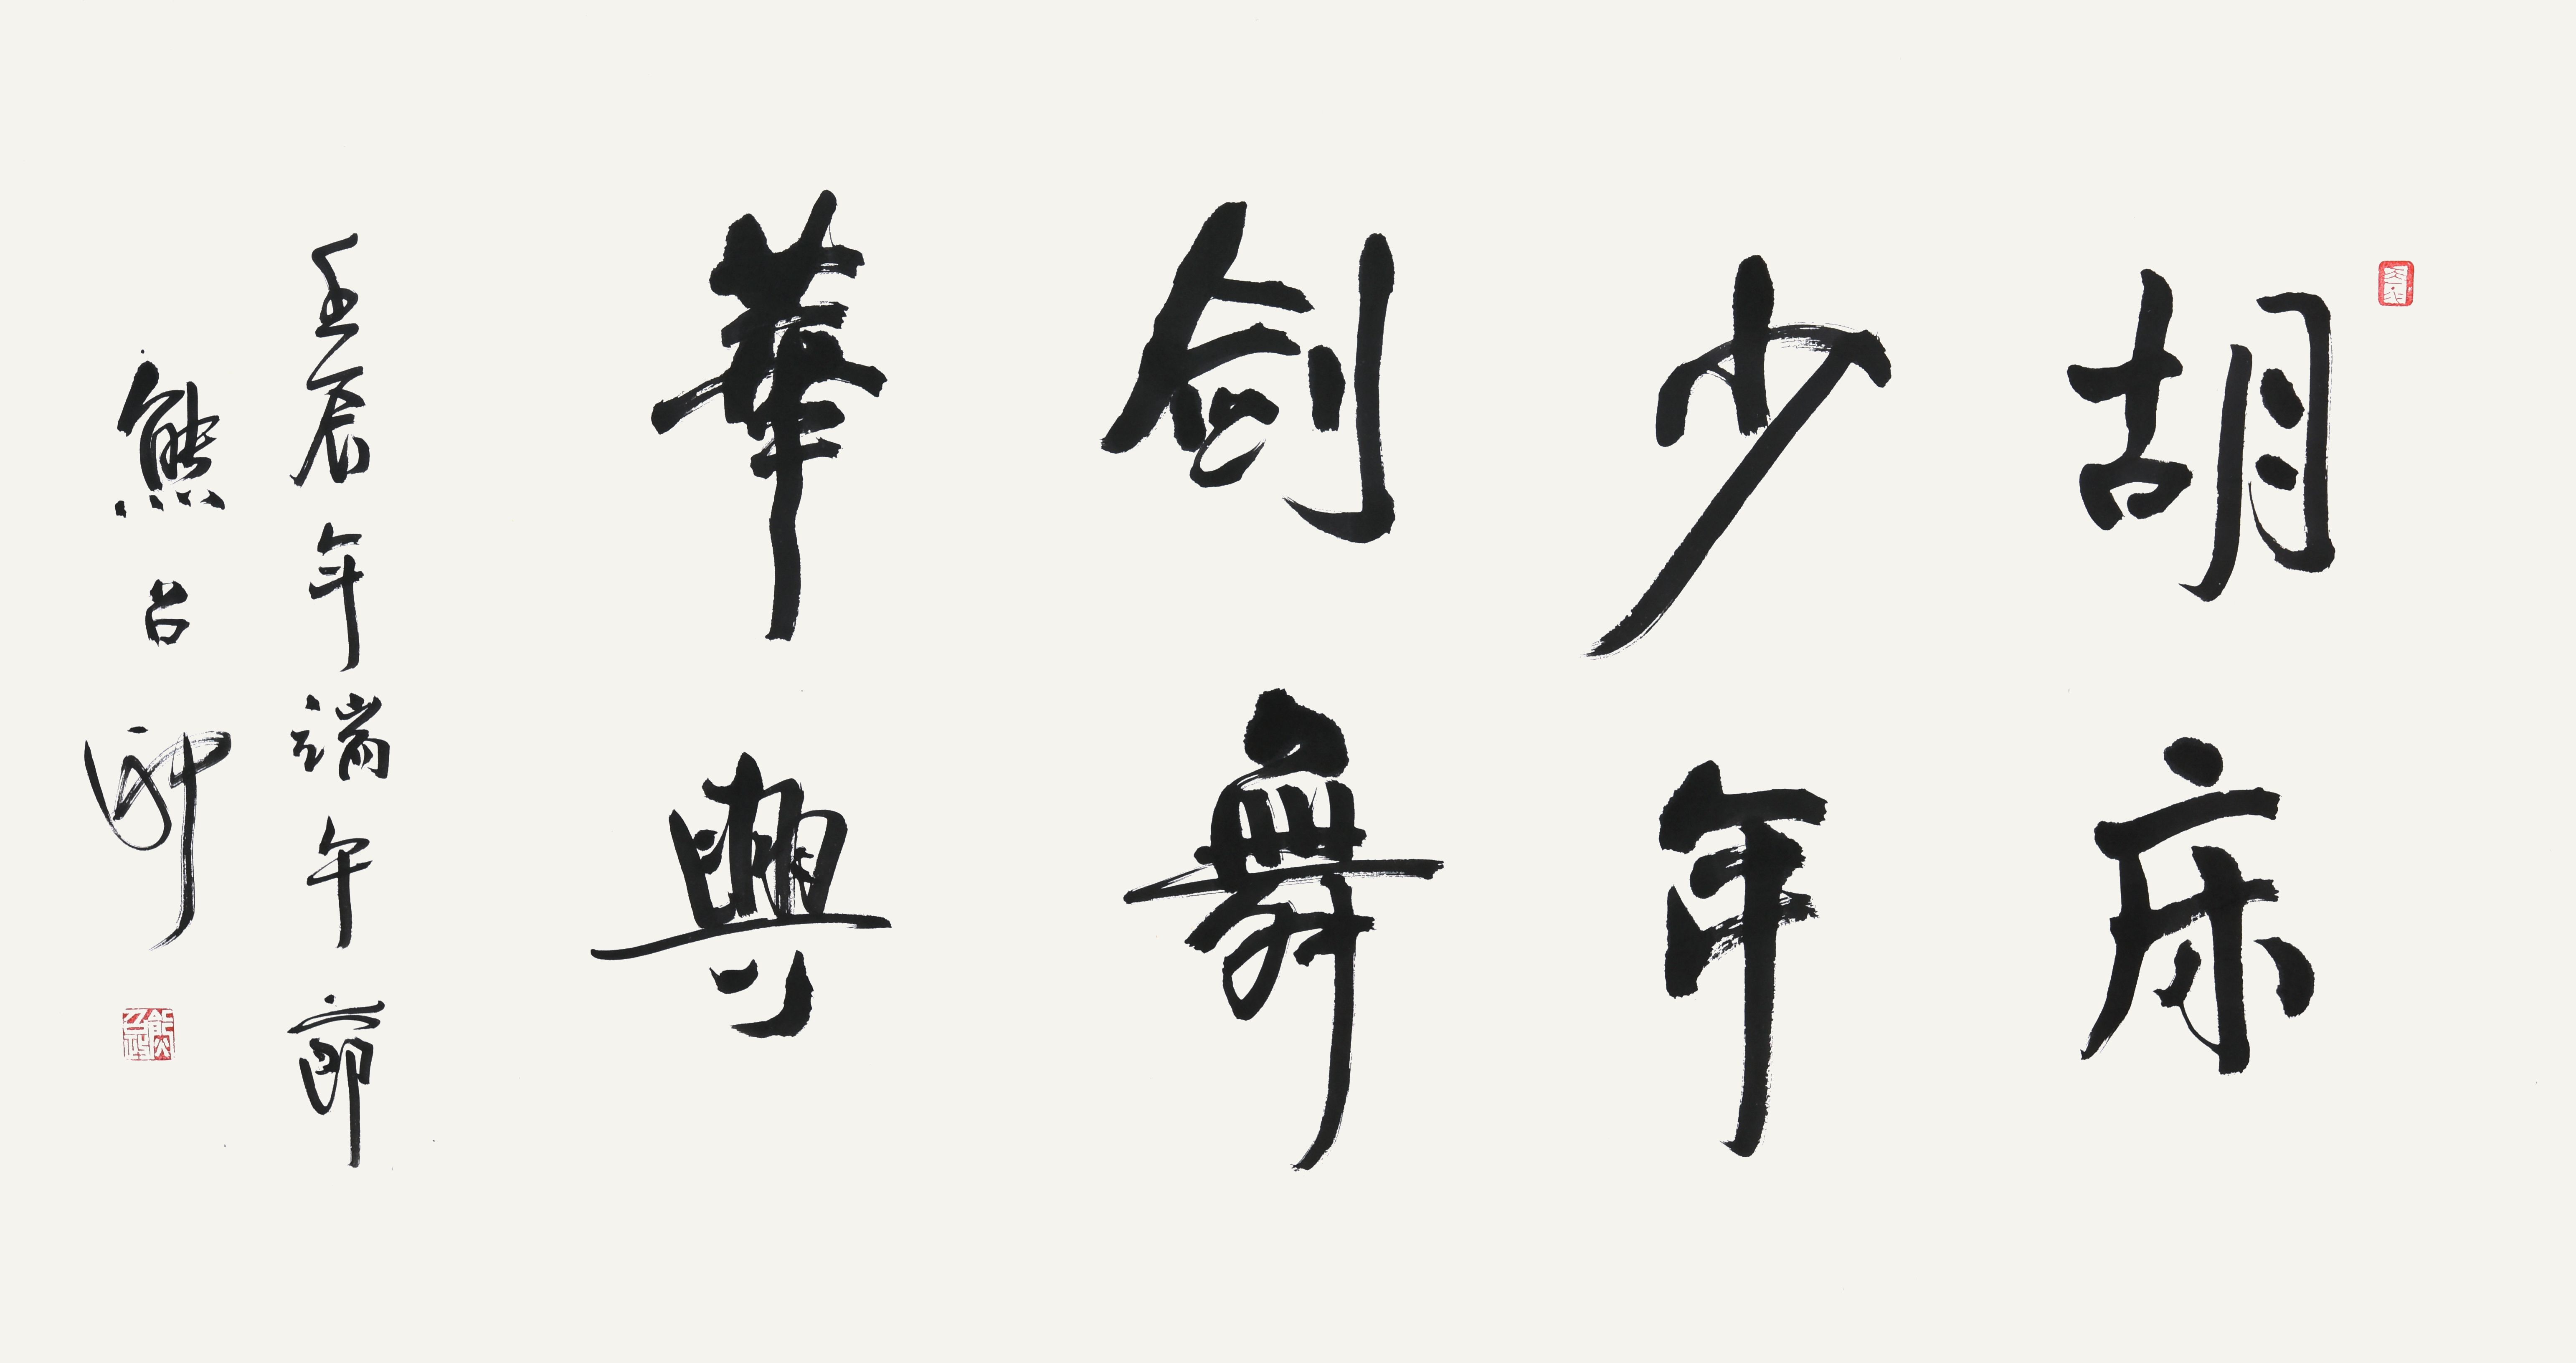 胡床
少年
剑舞
華輿
壬辰年端午節
熊召政